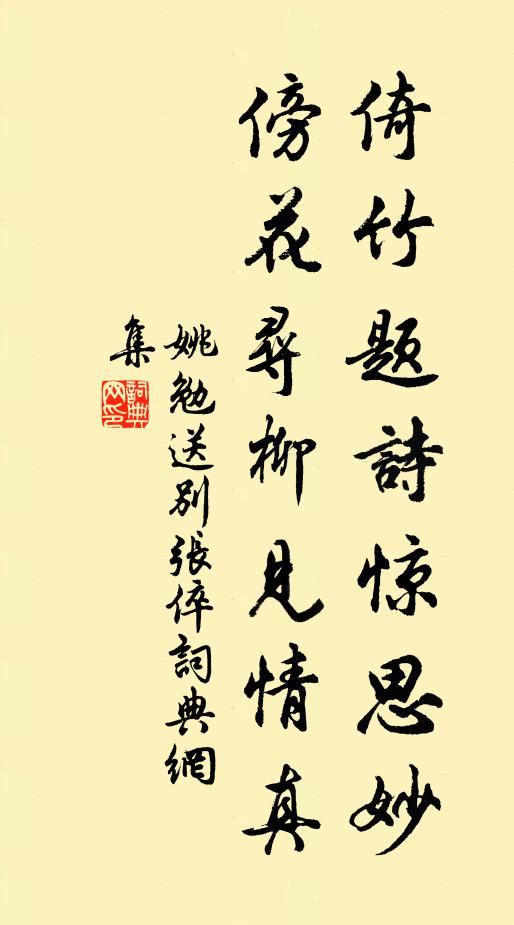 倚竹题詩惊思妙
傍花尋柳見情真
姚勉送别張倅詞典網
集
詞典
网印